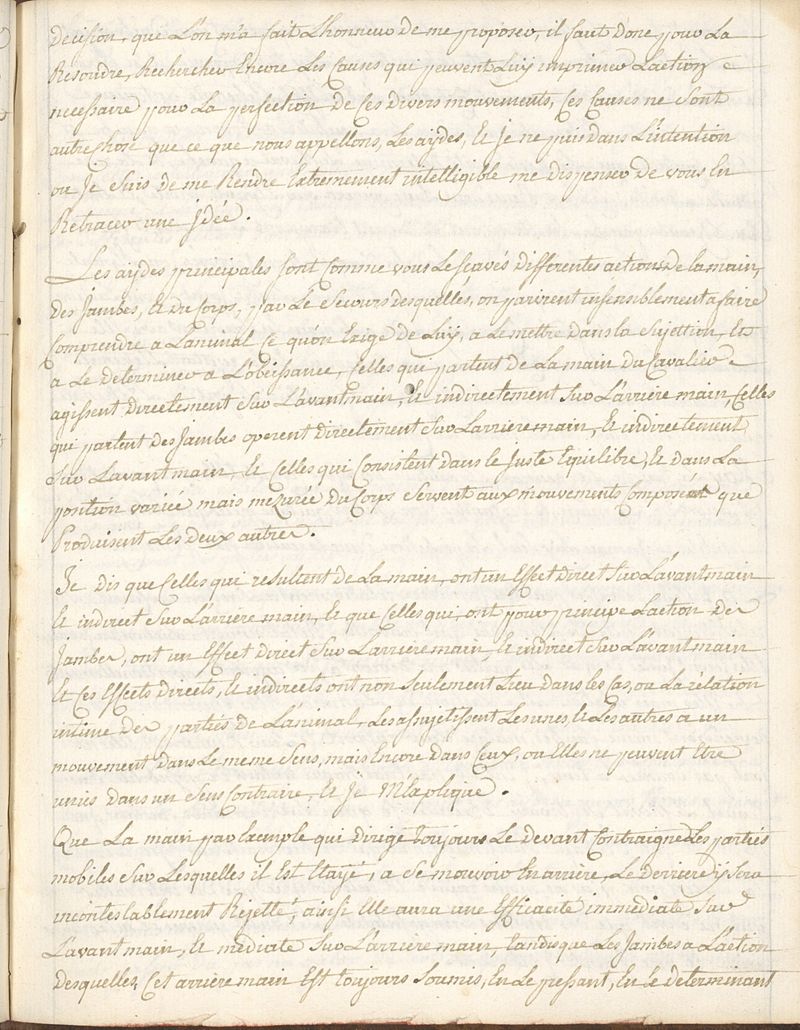 decision, que L'on m'a fait L'honneur de me proposer, il faut donc pour La
Resoudre, Rechercher Encore Les Causes qui peuvent Luy imprimer Laction
necessaire pour La perfection de Ces divers mouvements, Ces Causes ne Sont
autre Chose que ce que nous appellons, Les aydes, Et Je ne puis dans L'intention
ou Je Suis de me Rendre Extremement intelligible me dispenser de vous En
Retracer une Jdée.
Les aydes principales Sont Comme vous Le Scavés differentes actions de la main,
des Jambes, Et du Corps, par Le Secours desquelles, on parvient insensiblement a faire
Comprendre a Lanimal Ce qu'on Exige de Luy, a Le mettre dans la Sujettion, Et
a Le determiner a L'obeissance, Celles qui partent de La main du Cavalier
agissent directement Sur L'avantmain, Et indirectement Sur L'arriere main, Celles
qui partent des Jambes operent directement Sur Larriere main, Et indirectement
Sur Lavant main, Et Celles qui Consistent dans le Juste Equilibre, Et dans La
position variée mais mezurée du Corps Servent aux mouvements Composés que
Produisent Les deux autres.
Je dis que Celles qui resultent de La main, ont un Effect direct Sur L'avantmain
Et indirect Sur L'arriere main, Et que Celles qui, ont pour principe Laction des
Jambes, ont un Effect direct Sur Larriere main, Et indirect Sur L'avantmain
Et Ces Effects directs, Et indirects ont non Seulement Lieu dans les Cas, ou La rélation
intime des partiés de L'animal, Les assujetissent Les unes, Et Les autres a un
mouvement dans Le meme Sens, mais Encore dans Ceux, ou Elles ne peuvent Etre
unies dans un Sens Contraire, Et Je M'aplique.
Que La main par Exemple qui dirige toujours Le devant Contraigne Les partiés
mobiles Sur Lesquelles il Est Etayé, a Se mouvoir En arriere, Le derriere y Sera
incontestablement Rejetté, ainsi Elle aura une Efficacité immediate Sur
L'avant main, Et mediate Sur L'arriere main, tandis que Les Jambes a L'action
desquelles, Cet arriere main Est toujours Soumis, En Le pressant, En Le determinant